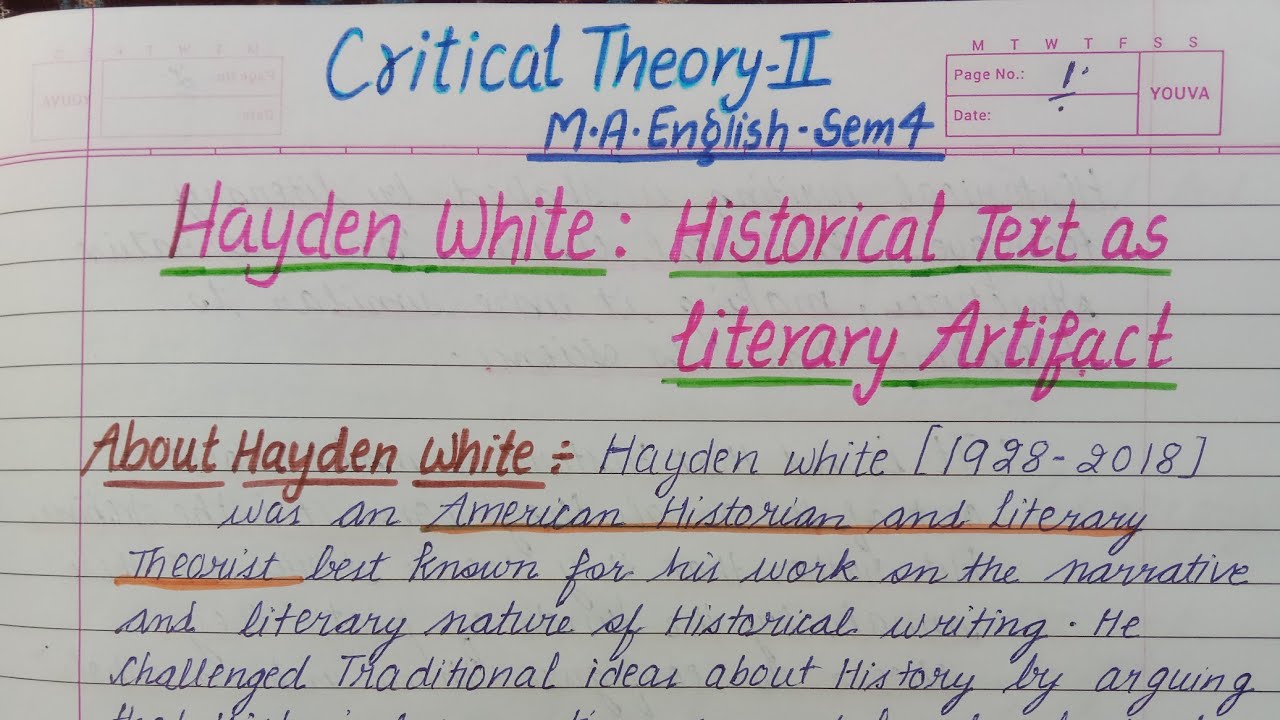 Critical Theory-II
M.A.English-Sem4
M T W T F S S
Page No.: 1.
YOUVA
Date:
Hayden White: Historical Text as
literary Artifact
About Hayden White:- Hayden white [1928-2018]
was an American Historian and literary
Theorist best known for his work on the narrative
and literary nature of Historical writing. He
challenged Traditional ideas about History by arguing